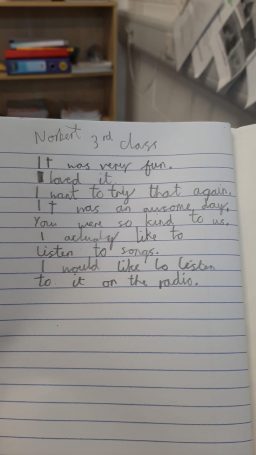 Norbert 3rd class
It was very fun.
I loved it.
I want to try that again.
It was an awsome day.
You were so kind to us.
I actualy like to
listen to songs.
I would like to listen
to it on the radio.